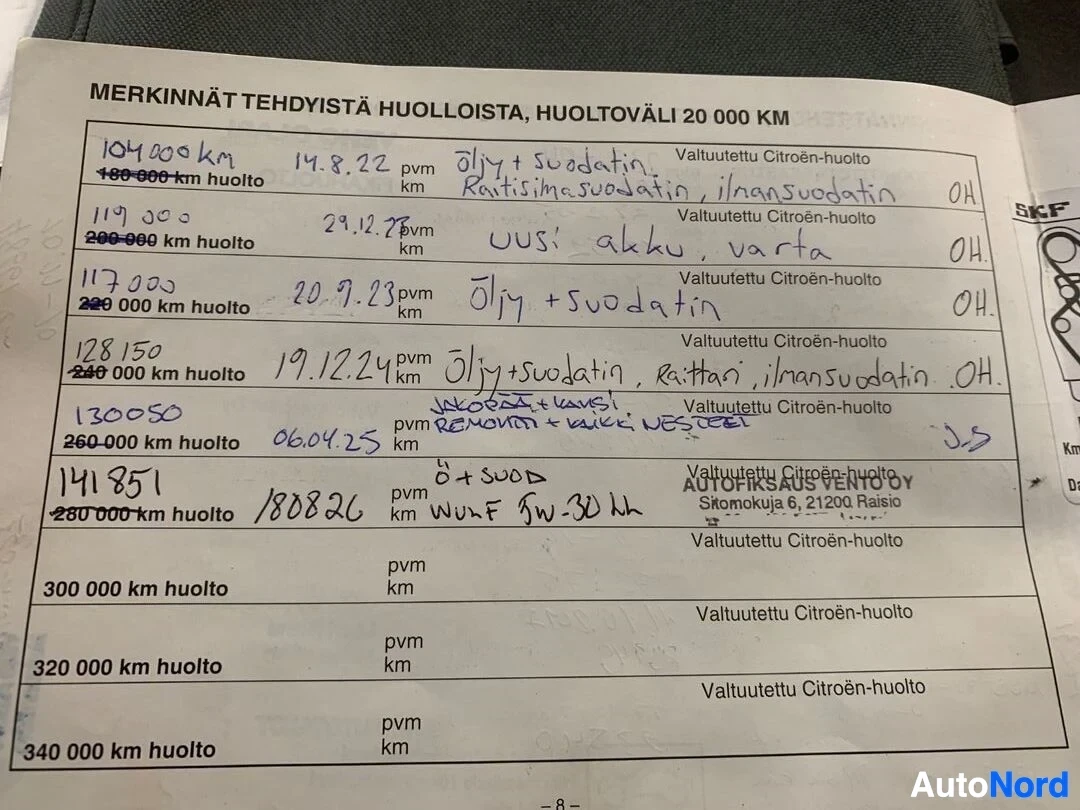 MERKINNÄT TEHDYISTÄ HUOLLOISTA, HUOLTOVÄLI 20 000 KM
104 000 km 14.8.22 pvm Öljy + suodatin Valtuutettu Citroën-huolto
180 000 km huolto km Raitisilmasuodatin, ilmansuodatin OH.
119 000 29.12.23 pvm Valtuutettu Citroën-huolto
200 000 km huolto km uusi akku, varta OH.
117 000 20.9.23 pvm Öljy + suodatin Valtuutettu Citroën-huolto
220 000 km huolto km OH.
128 150 19.12.24 pvm Öljy + suodatin, Raittari, ilmansuodatin Valtuutettu Citroën-huolto
240 000 km huolto km OH.
130050 JAKOPÄÄ + KANSI Valtuutettu Citroën-huolto
260 000 km huolto 06.04.25 pvm REMONTTI + KAIKKI NESTEET
km J.S
141851 Ö + SUOD Valtuutettu Citroën-huolto
AUTOFIKSAUS VENTO OY
280 000 km huolto 180826 pvm km 5W-30 Sitomokuja 6, 21200 Raisio
Valtuutettu Citroën-huolto
pvm
300 000 km huolto km
Valtuutettu Citroën-huolto
pvm
320 000 km huolto km
Valtuutettu Citroën-huolto
pvm
340 000 km huolto km
– 8 –
SKF
Km
Da
AutoNord